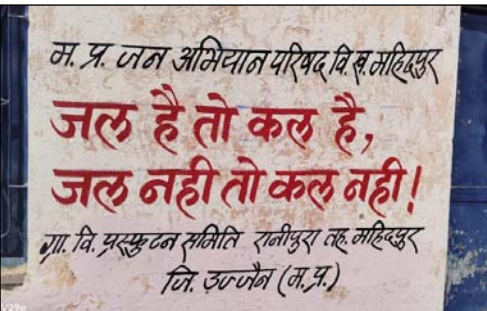 म. प्र. जन अभियान परिषद वि.ख. महिदपुर
जल है तो कल है,
जल नही तो कल नही!
ग्रा. वि. प्रस्फुटन समिति रानीपुरा तह. महिदपुर
जि. उज्जैन (म.प्र.)